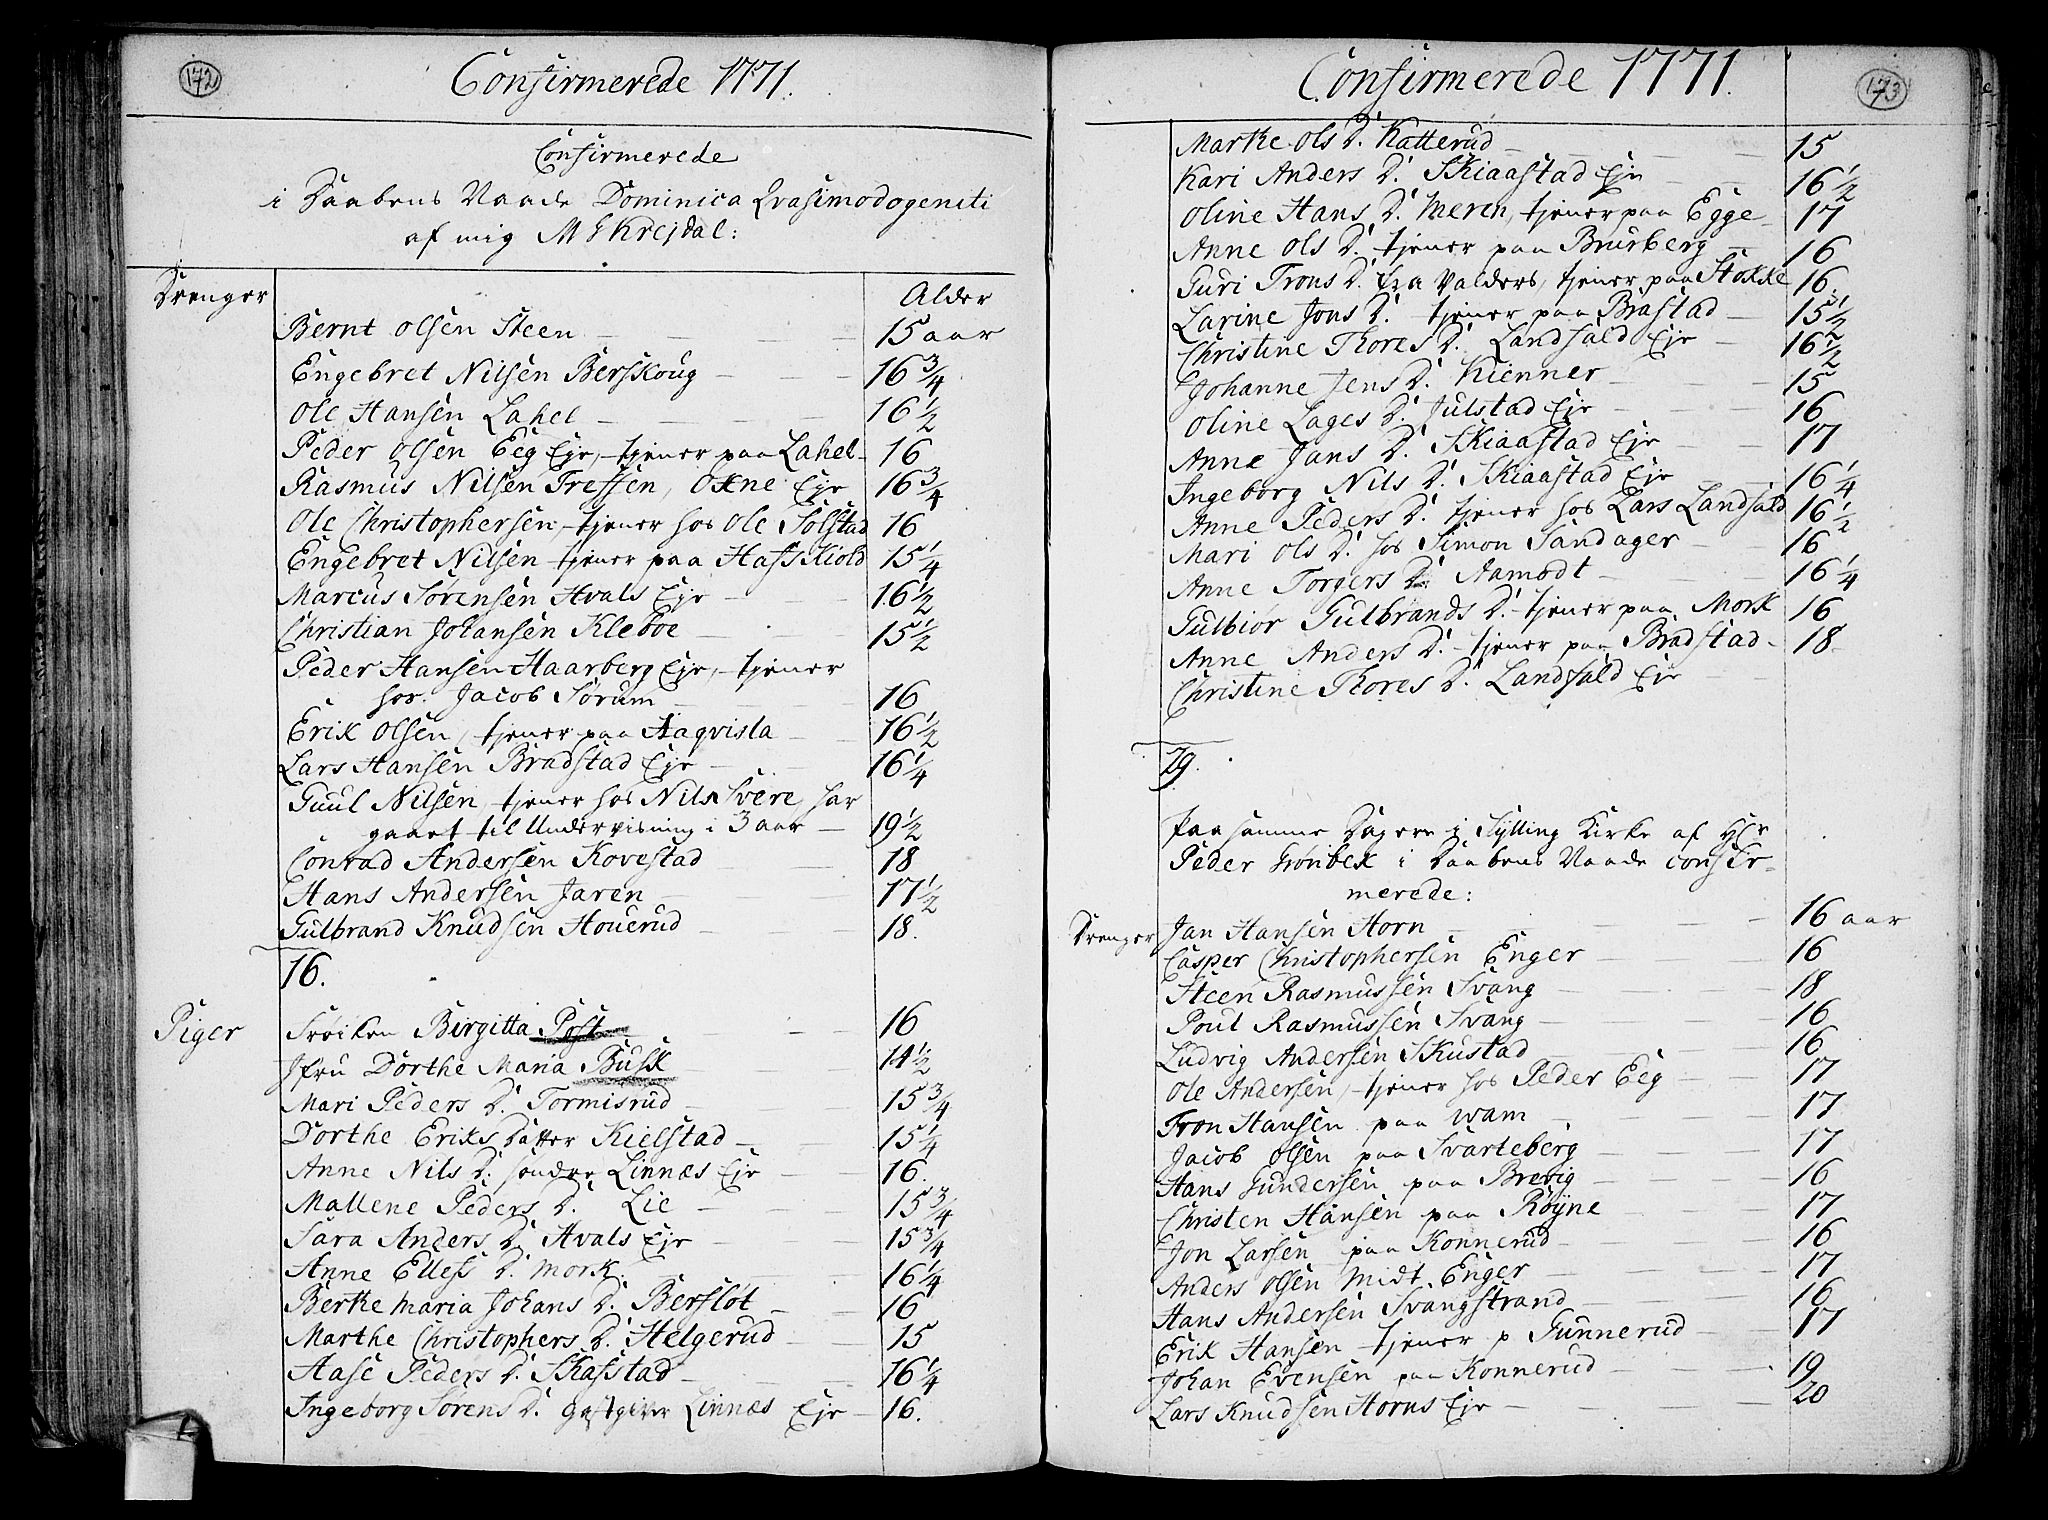 172
Confirmerede 1771.
Confirmerede
i Daabens Naade Dominica Qvasimodogeniti
af mig M
Drenger
Alder
Bernt Olsen Steen 15 aar
Engebret Nilsen Berskoug 16 3/4
Ole Hansen Lahel 16 1/2
Peder Olsen Eeg Eje, tjener paa Lahel 16
Rasmus Nilsen Treffen, Oxne Eje 16 3/4
Ole Christophersen, tjener hos Ole Solstad 16
Engebret Nilsen tjener paa Hafskiold 15 1/4
Marcus Sørensen Hvals Eje 16 1/2
Christian Johansen Kleboe 15 1/2
Peder Hansen Haarberg Eje, tjener
hos Jacob Sørum 16
Erik Olsen, tjener paa Aaqvisla 16 1/2
Lars Hansen Bradstad Eje 16 1/4
Guul Nilsen, tjener hos Nils Svere, har
gaaet til Undervisning i 3 aar 19 1/2
Conrad Andersen Kovestad 18
Hans Andersen Jaren 17 1/2
Gulbrand Knudsen Houerud 18.
16.
Piger
Frøiken Birgitta Post 16
Jfru Dorthe Maria Busk 14 1/2
Mari Peders D. Tormisrud 15 3/4
Dorthe Eriks Datter Kielstad 15 1/4
Anne Nils D. søndre Linnæs Eje 16.
Mallene Peders D. Lie 15 3/4
Sara Anders D. Hvals Eje 15 3/4
Anne Ellefs D. Mork. 16 1/4
Berthe Maria Johans D. Bersløt 16
Marthe Christophers D. Helgerud 15
Aase Peders D. Skafstad 16 1/4
Ingeborg Sørens D. Gastgiver Linnæs Eje 16.
173
Confirmerede 1771.
Marthe Ols D. Katterud 15
Kari Anders D. Skiaastad Eje 16 1/2
Oline Hans D. Meren, tjener paa Egge 17
Anne Ols D. tjener paa Brurberg 16
Guri Trons D. fra Valders, tjener paa Stokke 16.
Larine Jons D. tjener paa Brastad 15 1/2
Christine Thores D. Landfald Eje 16 1/2
Johanne Jens D. Kienner 15
Oline Lages D. Julstad Eje 16
Anne Jans D. Skiaastad Eje 17
Ingeborg Nils D. Skiaastad Eje 16 1/4
Anne Peders D. tjener hos Lars Landfald 16 1/2
Mari Ols D. hos Simon Sandager 16
Anne Torgers D. Aamodt 16 1/4
Gulbiør Gulbrands D. tjener paa Mork 16
Anne Anders D. tjener paa Bradstad 18
Christine Thores D. Landfald Eje
29.
Paa samme Dag ere i Sylling Kirke af Hr
Peder Grønbek i Daabens Naade confir-
merede:
Drenger
Jan Hansen Horn 16 aar
Casper Christophersen Enger 16
Steen Rasmussen Svang 18
Poul Rasmussen Svang 16
Ludvig Andersen Skustad 16
Ole Andersen, tjener hos Peder Eeg 17
Tron Hansen paa Wam 17
Jacob Olsen paa Svarteberg 17
Hans Gundersen paa Brevig 16
Christen Hansen paa Røyne 17
Jon Larsen paa Konnerud 16
Anders Olsen Midt Enger 17
Hans Andersen Svangstrand 16
Erik Hansen tjener p Gunnerud 17
Johan Evensen paa Konnerud 19
Lars Knudsen Horns Eje 20